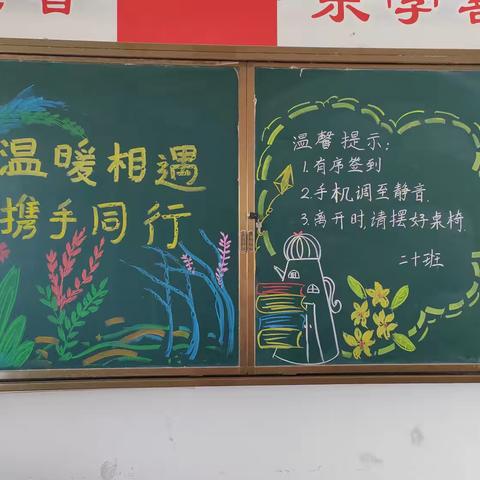 乐学善
温暖相遇
携手同行
温馨提示:
1.有序签到
2.手机调至静音.
3.离开时,请摆好桌椅.
二十班